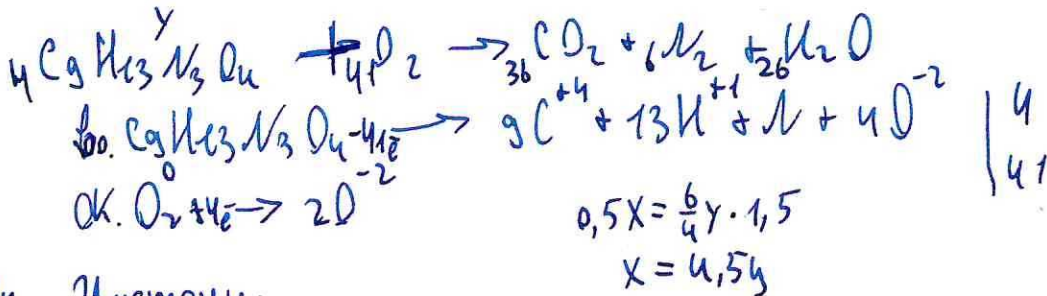 y
4 C9H13N3O4 + 41O2 → 36CO2 + 6N2 + 26H2O
Во. C9H13N3O4 -41ē → 9C+4 + 13H+1 + N + 4O-2 | 4
ОК. O2 0 +4ē → 2O-2 | 41
0,5X = 6/4 y · 1,5
X = 4,5y